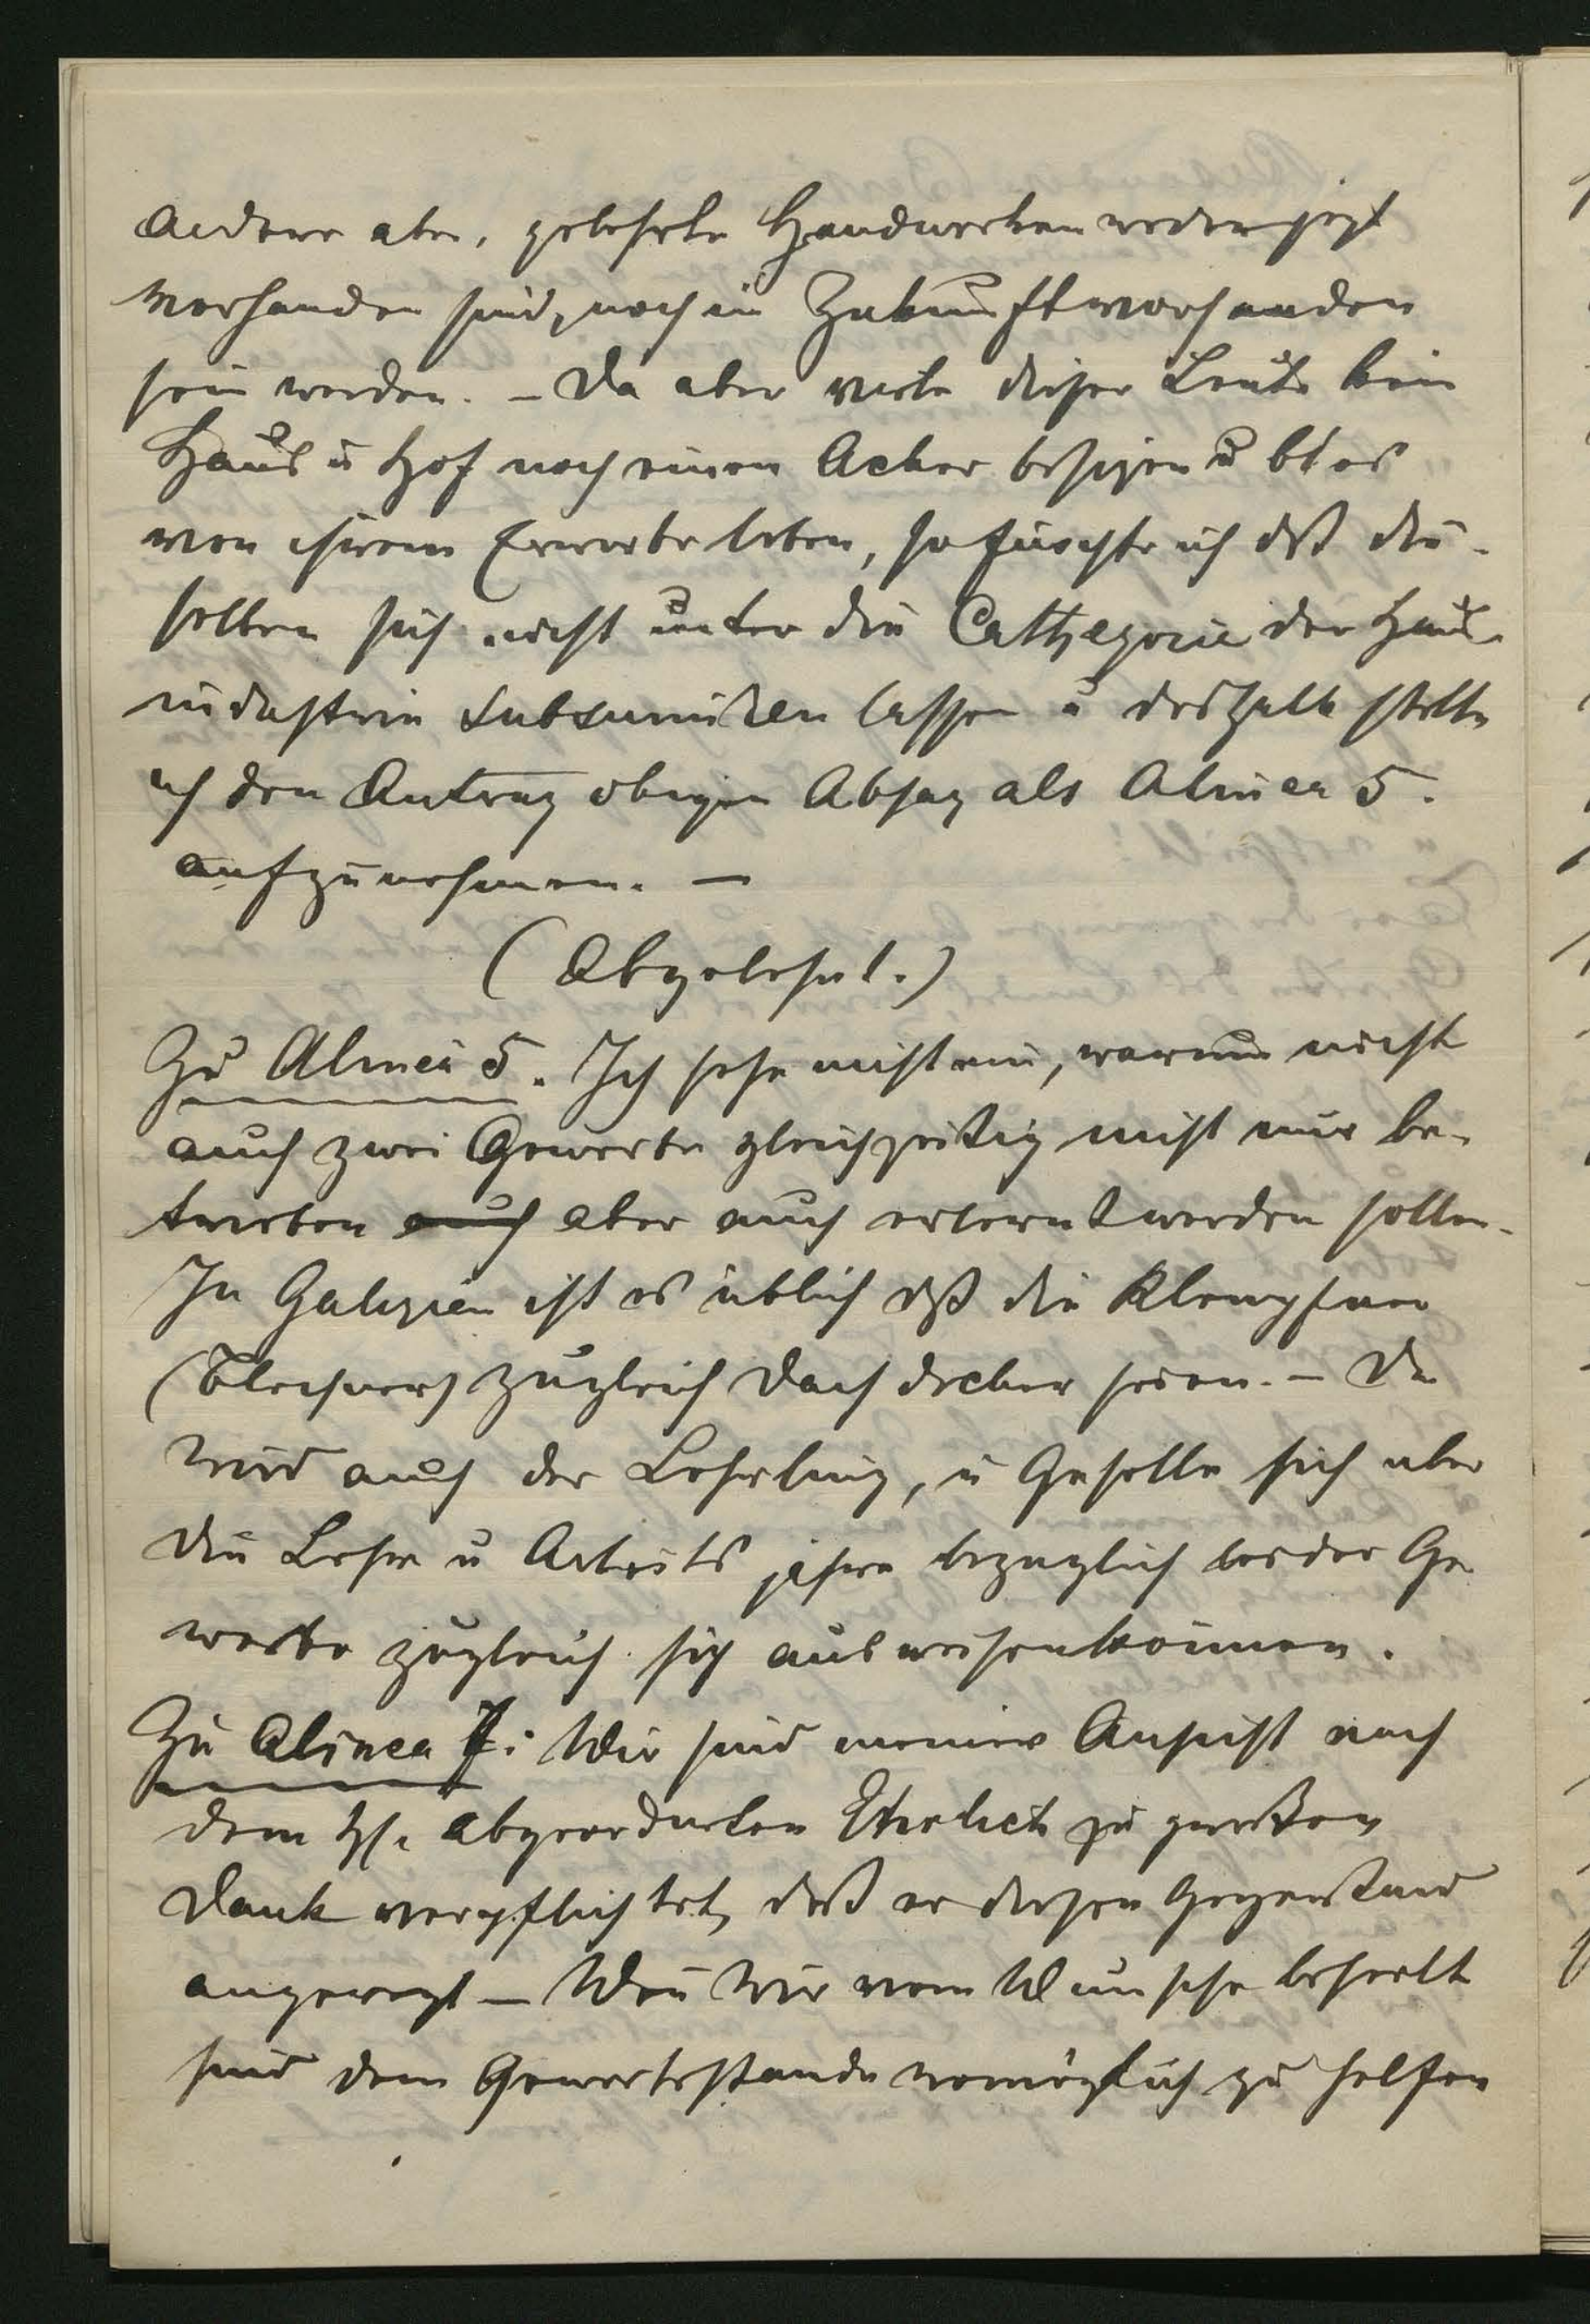 andere aber, gelehrte Handwerker weder jezt
vorhanden sind, noch in Zukunft vorhanden
sein werden. – Da aber viele dieser Leute kein
Haus u Hof noch einen Acker besizen u blos
von ihrem Erwerbe leben, so fürchte ich dß die-
selben sich nicht unter die Cathegorie der Haus-
industrie subsumiren lassen u deshalb stelle
ich den Antrag obigen Absaz als Alinea 5.
aufzunehmen. –
(Abgelehnt.)
Zu Alinea 5. Ich sehe nicht ein, warum nicht
auch zwei Gewerbe gleichzeitig nicht nur be-
trieben auch aber auch erlernt werden sollen.
In Galizien ist es üblich dß die Klempfner
(Blechner) zugleich Dachdecker seien. – Da
wird auch der Lehrling, u Geselle sich über
die Lehr u Arbeits jahre bezüglich beider Ge
werbe zugleich sich ausweisen können.
Zu Alinea 7: Wir sind meiner Ansicht nach
dem H. Abgeordneten Ehrlich zu großem
Dank verpflichtet, daß er diesen Gegenstand
angeregt – Wenn wir vom Wunsche beseelt
sind dem Gewerbestande womöglich zu helfen